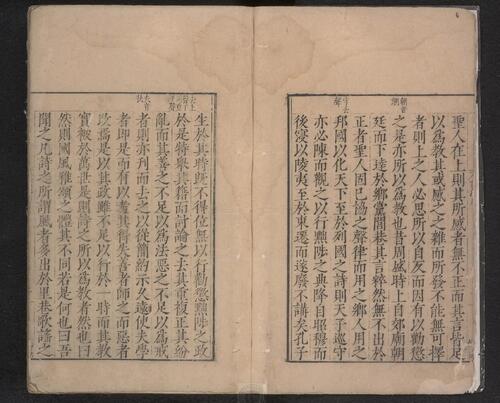 朝音潮
聖人在上則其所感者無不正而其言皆足
以為教其或感之之雜而所發不能無可擇
者則上之人必思所以自反而因有以勸懲
之是亦所以為教也昔周盛時上自郊廟朝
廷而下達於鄉黨閭巷其言粹然無不出於
正者聖人固已協之聲律而用之鄉人用之
邦國以化天下至於列國之詩則天子巡守
亦必陳而觀之以行黜陟之典降自昭穆而
後寖以陵夷至於東遷而遂廢不講矣孔子
生於其時既不得位無以行勸懲黜陟之政
於是特舉其籍而討論之去其重複正其紛
亂而其善之不足以為法惡之不足以為戒
夫音扶
者則亦刊而去之以從簡約示久遠使夫學
者即是而有以考其得失善者師之而惡者
改焉是以其政雖不足以行於一時而其教
實被於萬世是則詩之所以為教者然也曰
然則國風雅頌之體其不同若是何也曰吾
聞之凡詩之所謂風者多出於里巷歌謠之